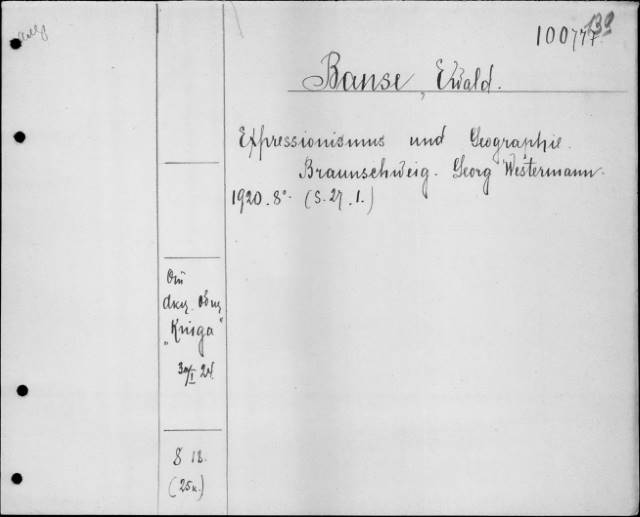 100777
139
Banse, Ewald.
Expressionismus und Geographie.
Braunschweig. Georg Westermann.
1920. 8°. (S. 27. 1.)
"Kniga"
30/I 24.
8 18.
(25к.)